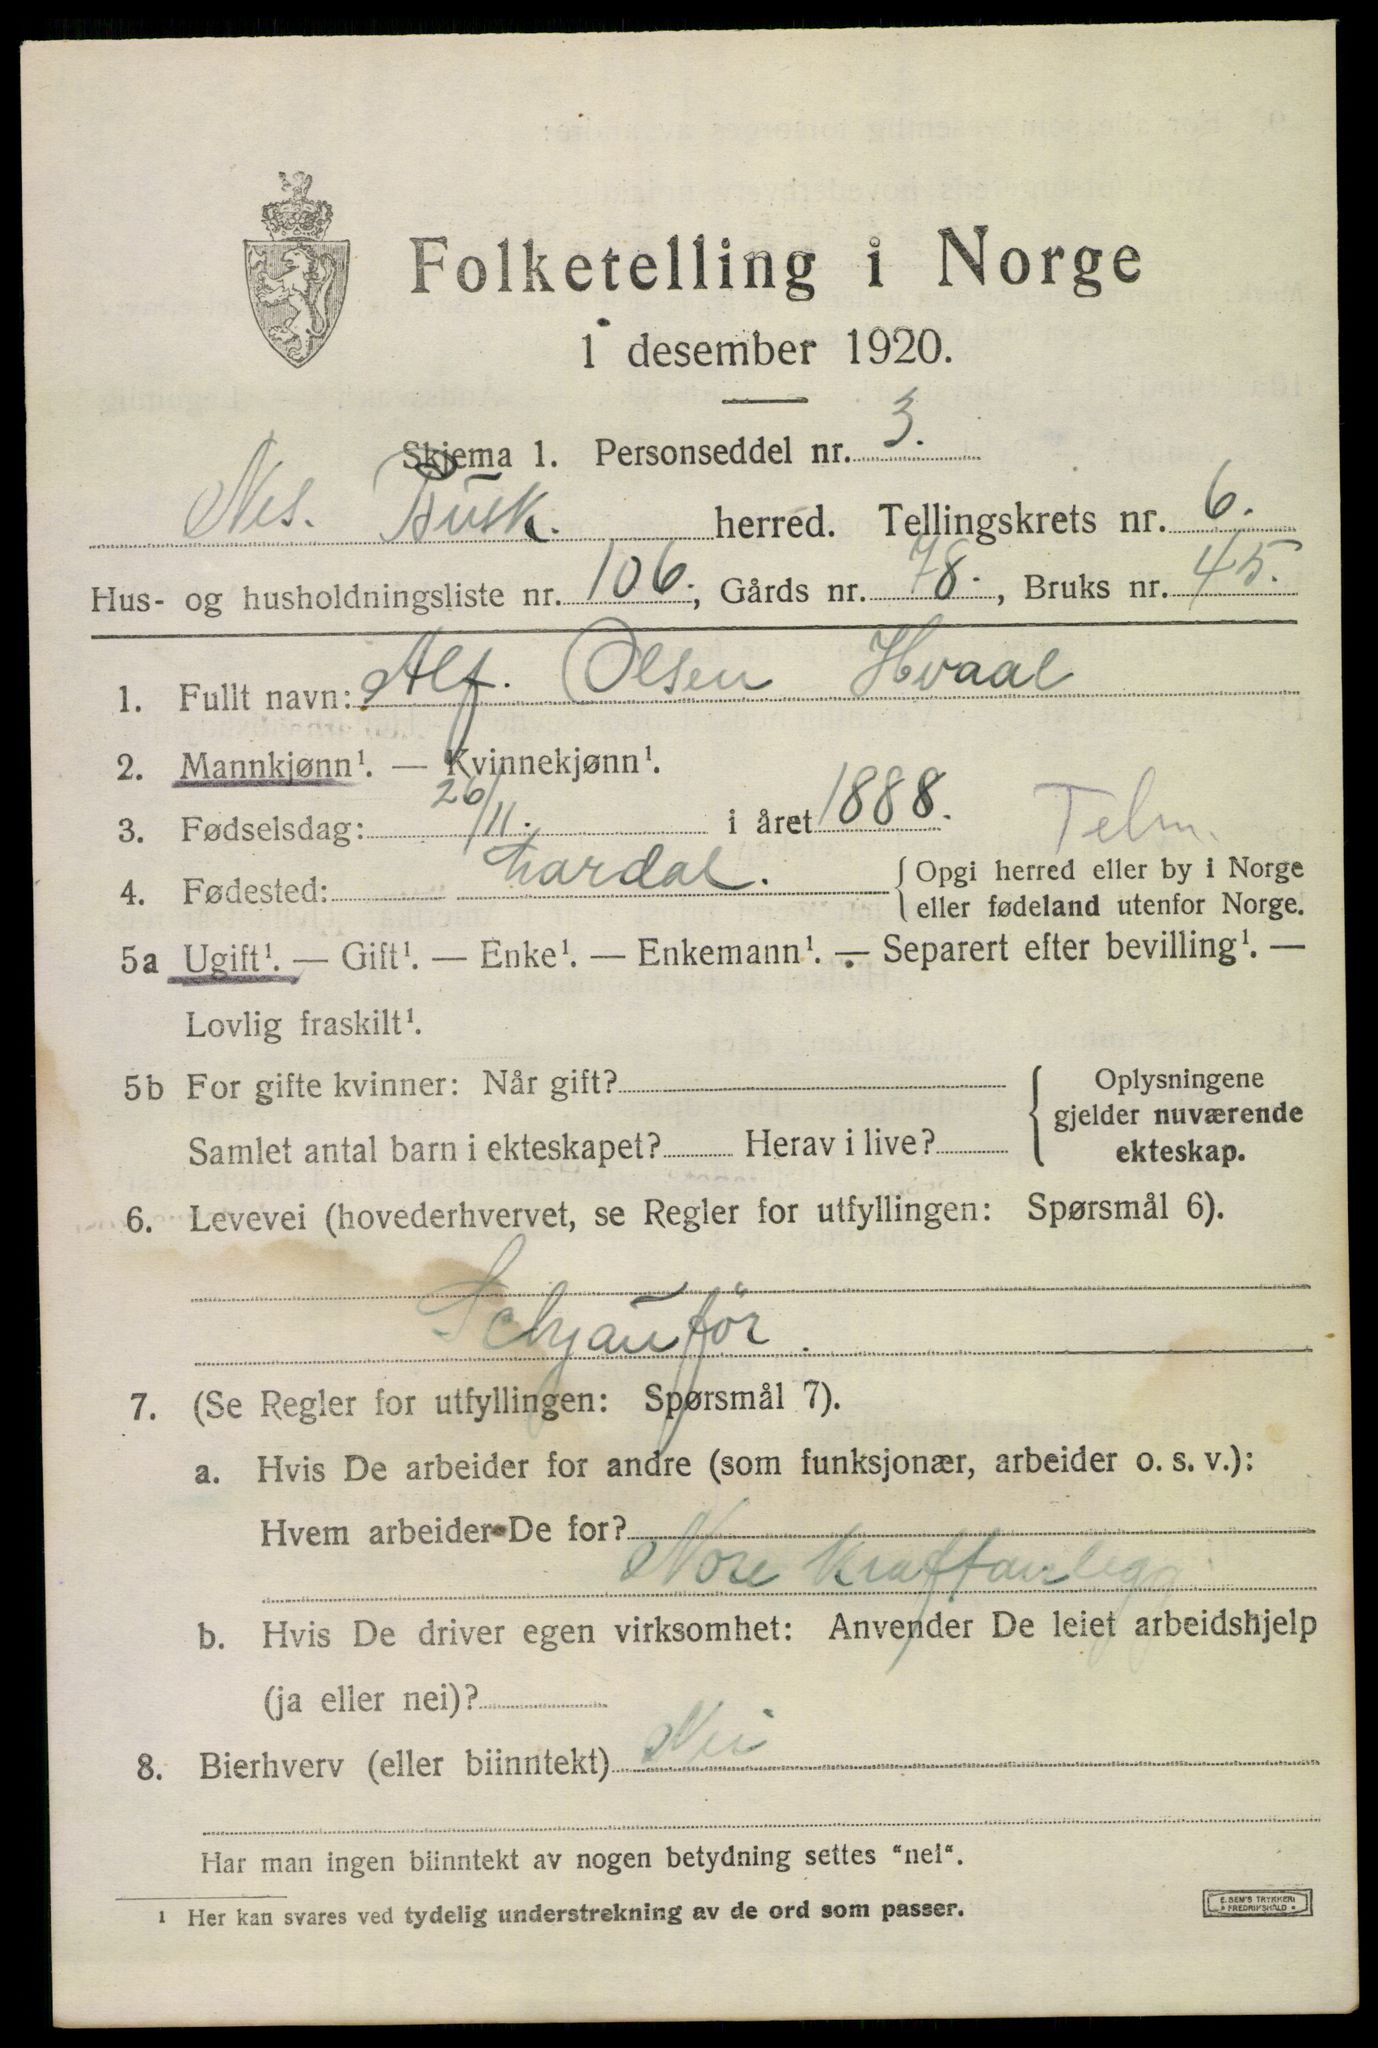 Folketelling i Norge
1 desember 1920.
Skjema 1. Personseddel nr. 3.
Nes. Busk. herred. Tellingskrets nr. 6.
Hus- og husholdningsliste nr. 106., Gårds nr. 78., Bruks nr. 45.
1. Fullt navn: Alf. Olsen Hvaal
2. Mannkjønn¹. — Kvinnekjønn¹.
3. Fødselsdag: 26/11. i året 1888. Telm.
4. Fødested: Lardal. { Opgi herred eller by i Norge
eller fødeland utenfor Norge.
5a Ugift¹. — Gift¹. — Enke¹. — Enkemann¹. — Separert efter bevilling¹. —
Lovlig fraskilt¹.
5b For gifte kvinner: Når gift? { Oplysningene
gjelder nuværende
Samlet antal barn i ekteskapet? Herav i live? ekteskap.
6. Levevei (hovederhvervet, se Regler for utfyllingen: Spørsmål 6).
Schjaufför.
7. (Se Regler for utfyllingen: Spørsmål 7).
a. Hvis De arbeider for andre (som funksjonær, arbeider o. s. v.):
Hvem arbeider De for?
Nore Kraftanlegg
b. Hvis De driver egen virksomhet: Anvender De leiet arbeidshjelp
(ja eller nei)?
8. Bierhverv (eller biinntekt) Nei
Har man ingen biinntekt av nogen betydning settes "nei".
1 Her kan svares ved tydelig understrekning av de ord som passer.
E. SEM'S TRYKKERI
FREDRIKSHALD